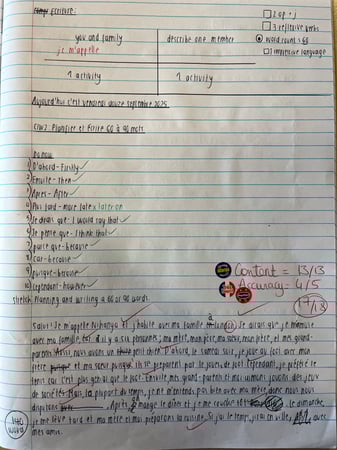 Écriture
□ 2 op + j
□ 3 reflexive verbs
word count: 68
□ 1 impressive language
you and family
describe one member
je m'appelle
1 activity
1 activity
Aujourd'hui c'est vendredi douze septembre 2025
LW2: Planifier et Écrire 60 à 90 mots.
Do now
1) D'abord - Firstly
2) Ensuite - Then
3) Après - After
4) Plus tard - more late x later on
5) Je dirais que - I would say that
6) Je pense que - I think that
7) parce que - because
8) car - because
9) puisque - because
10) cependant - however
Stretch: Planning and writing a 60 or 90 words.
Content = 13/13
Accuracy = 4/5
17/18
à
Salut! Je m'appelle et j'habite avec ma famille Je dirais que je m'amuse
avec ma famille, il y a six personnes; ma mère, mon père, ma sœur, mon frère, et mes grand-
parents. Aussi, nous avons un petit chien. D'abord, le samedi soir, je joue au foot avec mon
frère et ma sœur ils se préparent pour le jeu de foot. Cependant, je préfère le
tennis car c'est plus génial que le foot. Ensuite, mes grand-parents et moi aimons jouons des jeux
de société. Mais, la plupart du temps, je m'entends pas bien avec ma mère, donc nous nous
disputons Après, je mange le dîner et je me couche le dimanche,
je me lève tard et ma mère et moi préparons la cuisine. Si j'ai le temps, j'irai en ville, avec
mes amis.
140
words